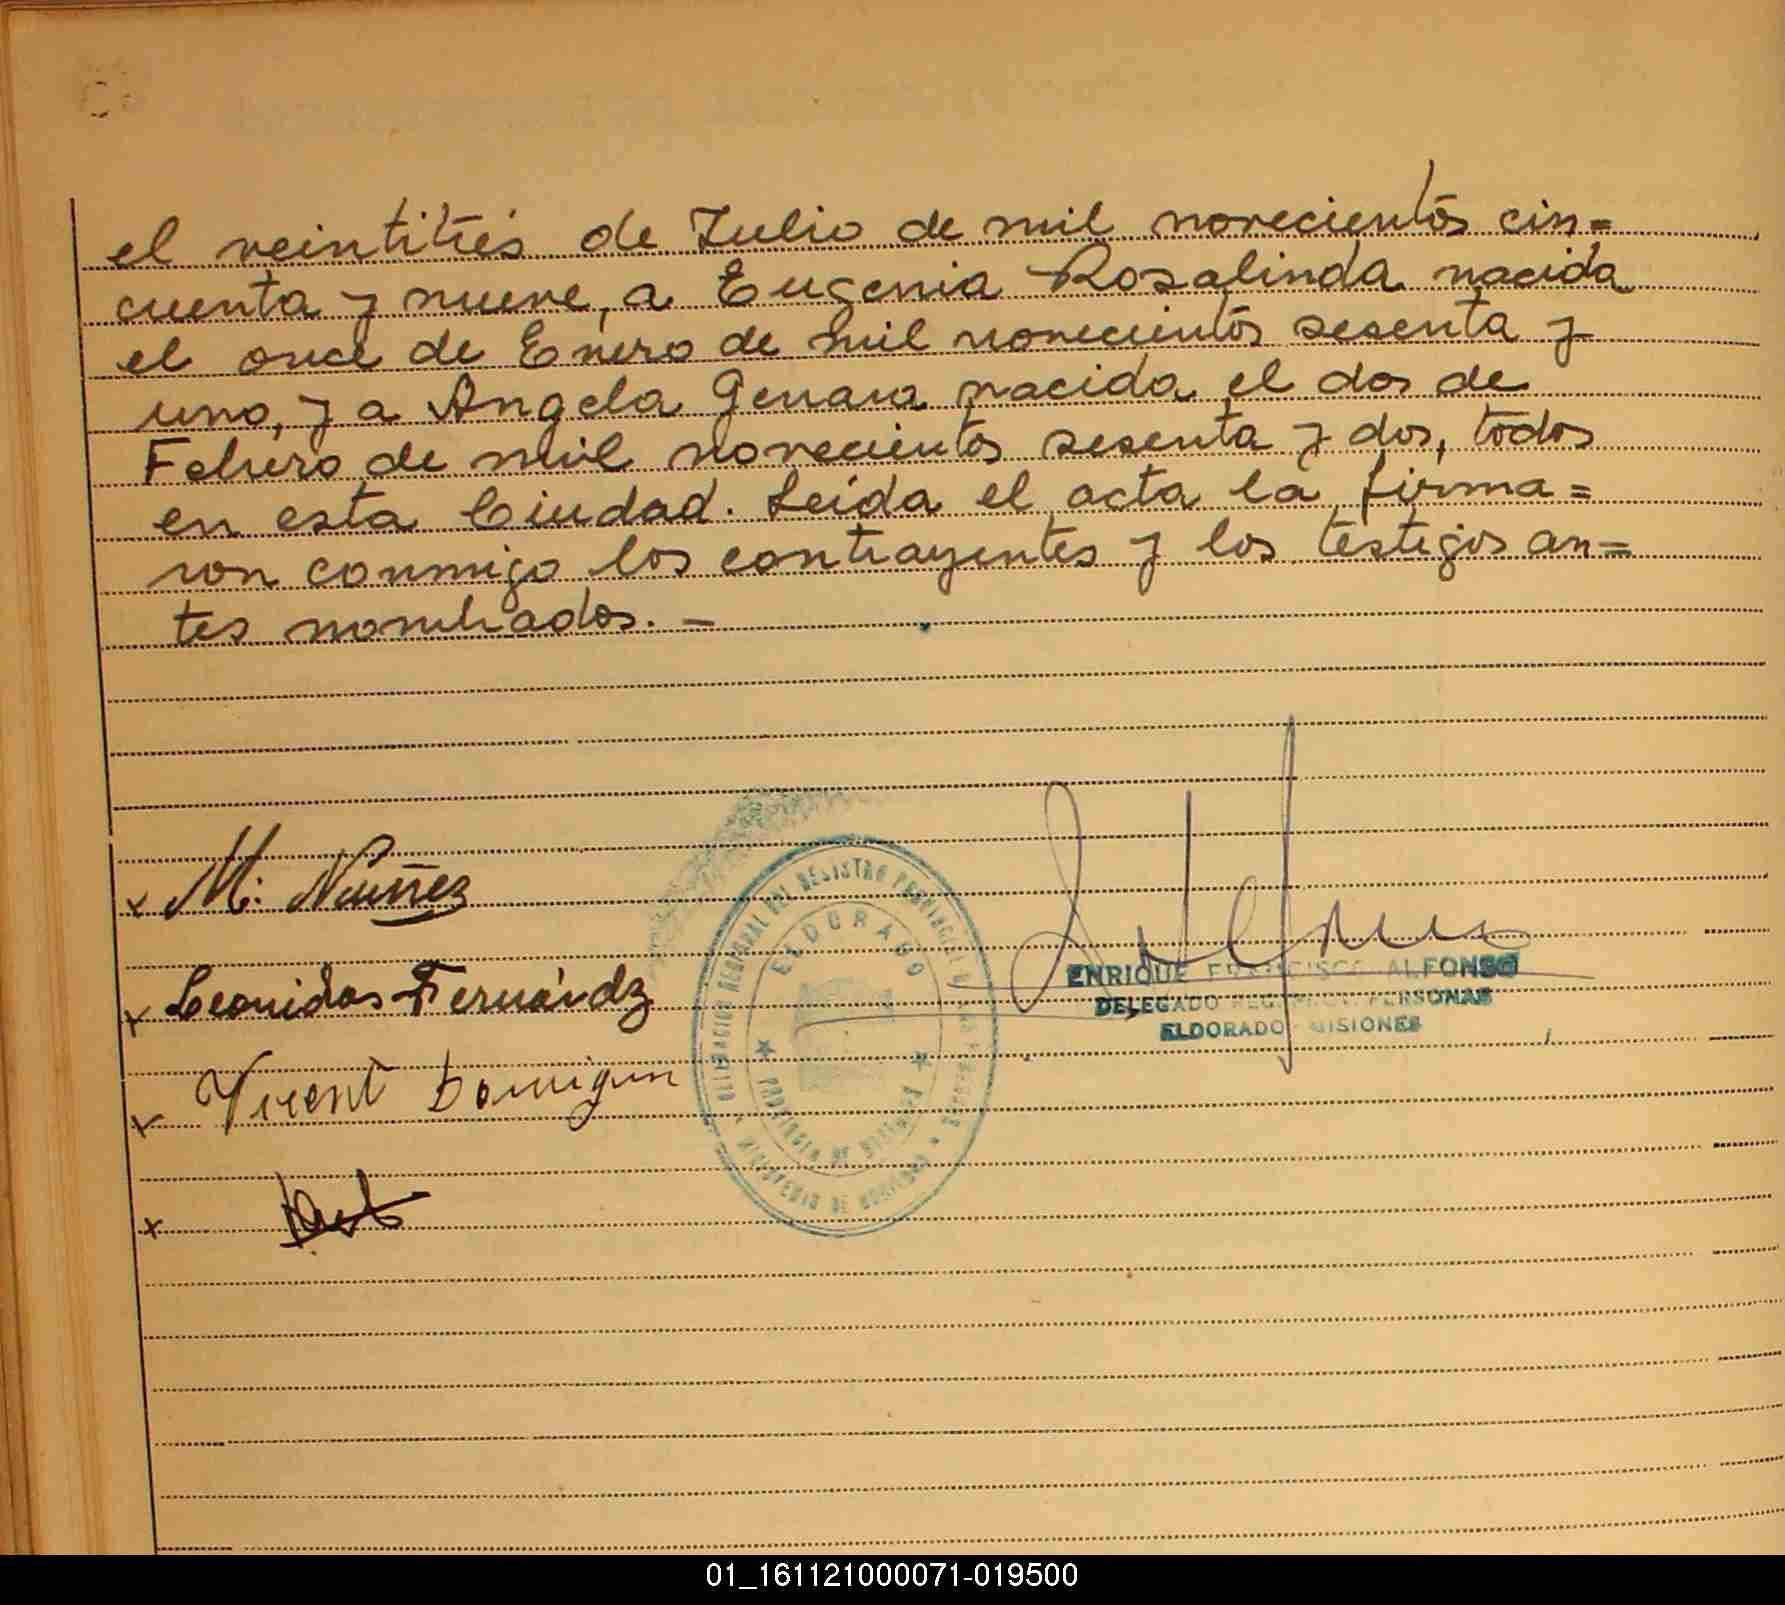 el veintitrés de Julio de mil novecientos cin=
cuenta y nueve, a Eugenia Rosalinda nacida
el once de Enero de mil novecientos sesenta y
uno, y a Angela Genara nacida el dos de
Febrero de mil novecientos sesenta y dos, todos
en esta Ciudad. Leída el acta la firma=
ron conmigo los contrayentes y los testigos an=
tes nombrados. -
x M. Nuñez
x Leonidas Fernández
x
x
DELEGACION REGIONAL DEL REGISTRO PROVINCIAL DE LAS PERSONAS
ELDORADO
PROVINCIA DE MISIONES
MINISTERIO DE GOBIERNO
ENRIQUE FRANCISCO ALFONSO
DELEGADO REG. PERSONAS
ELDORADO - MISIONES
01_161121000071-019500